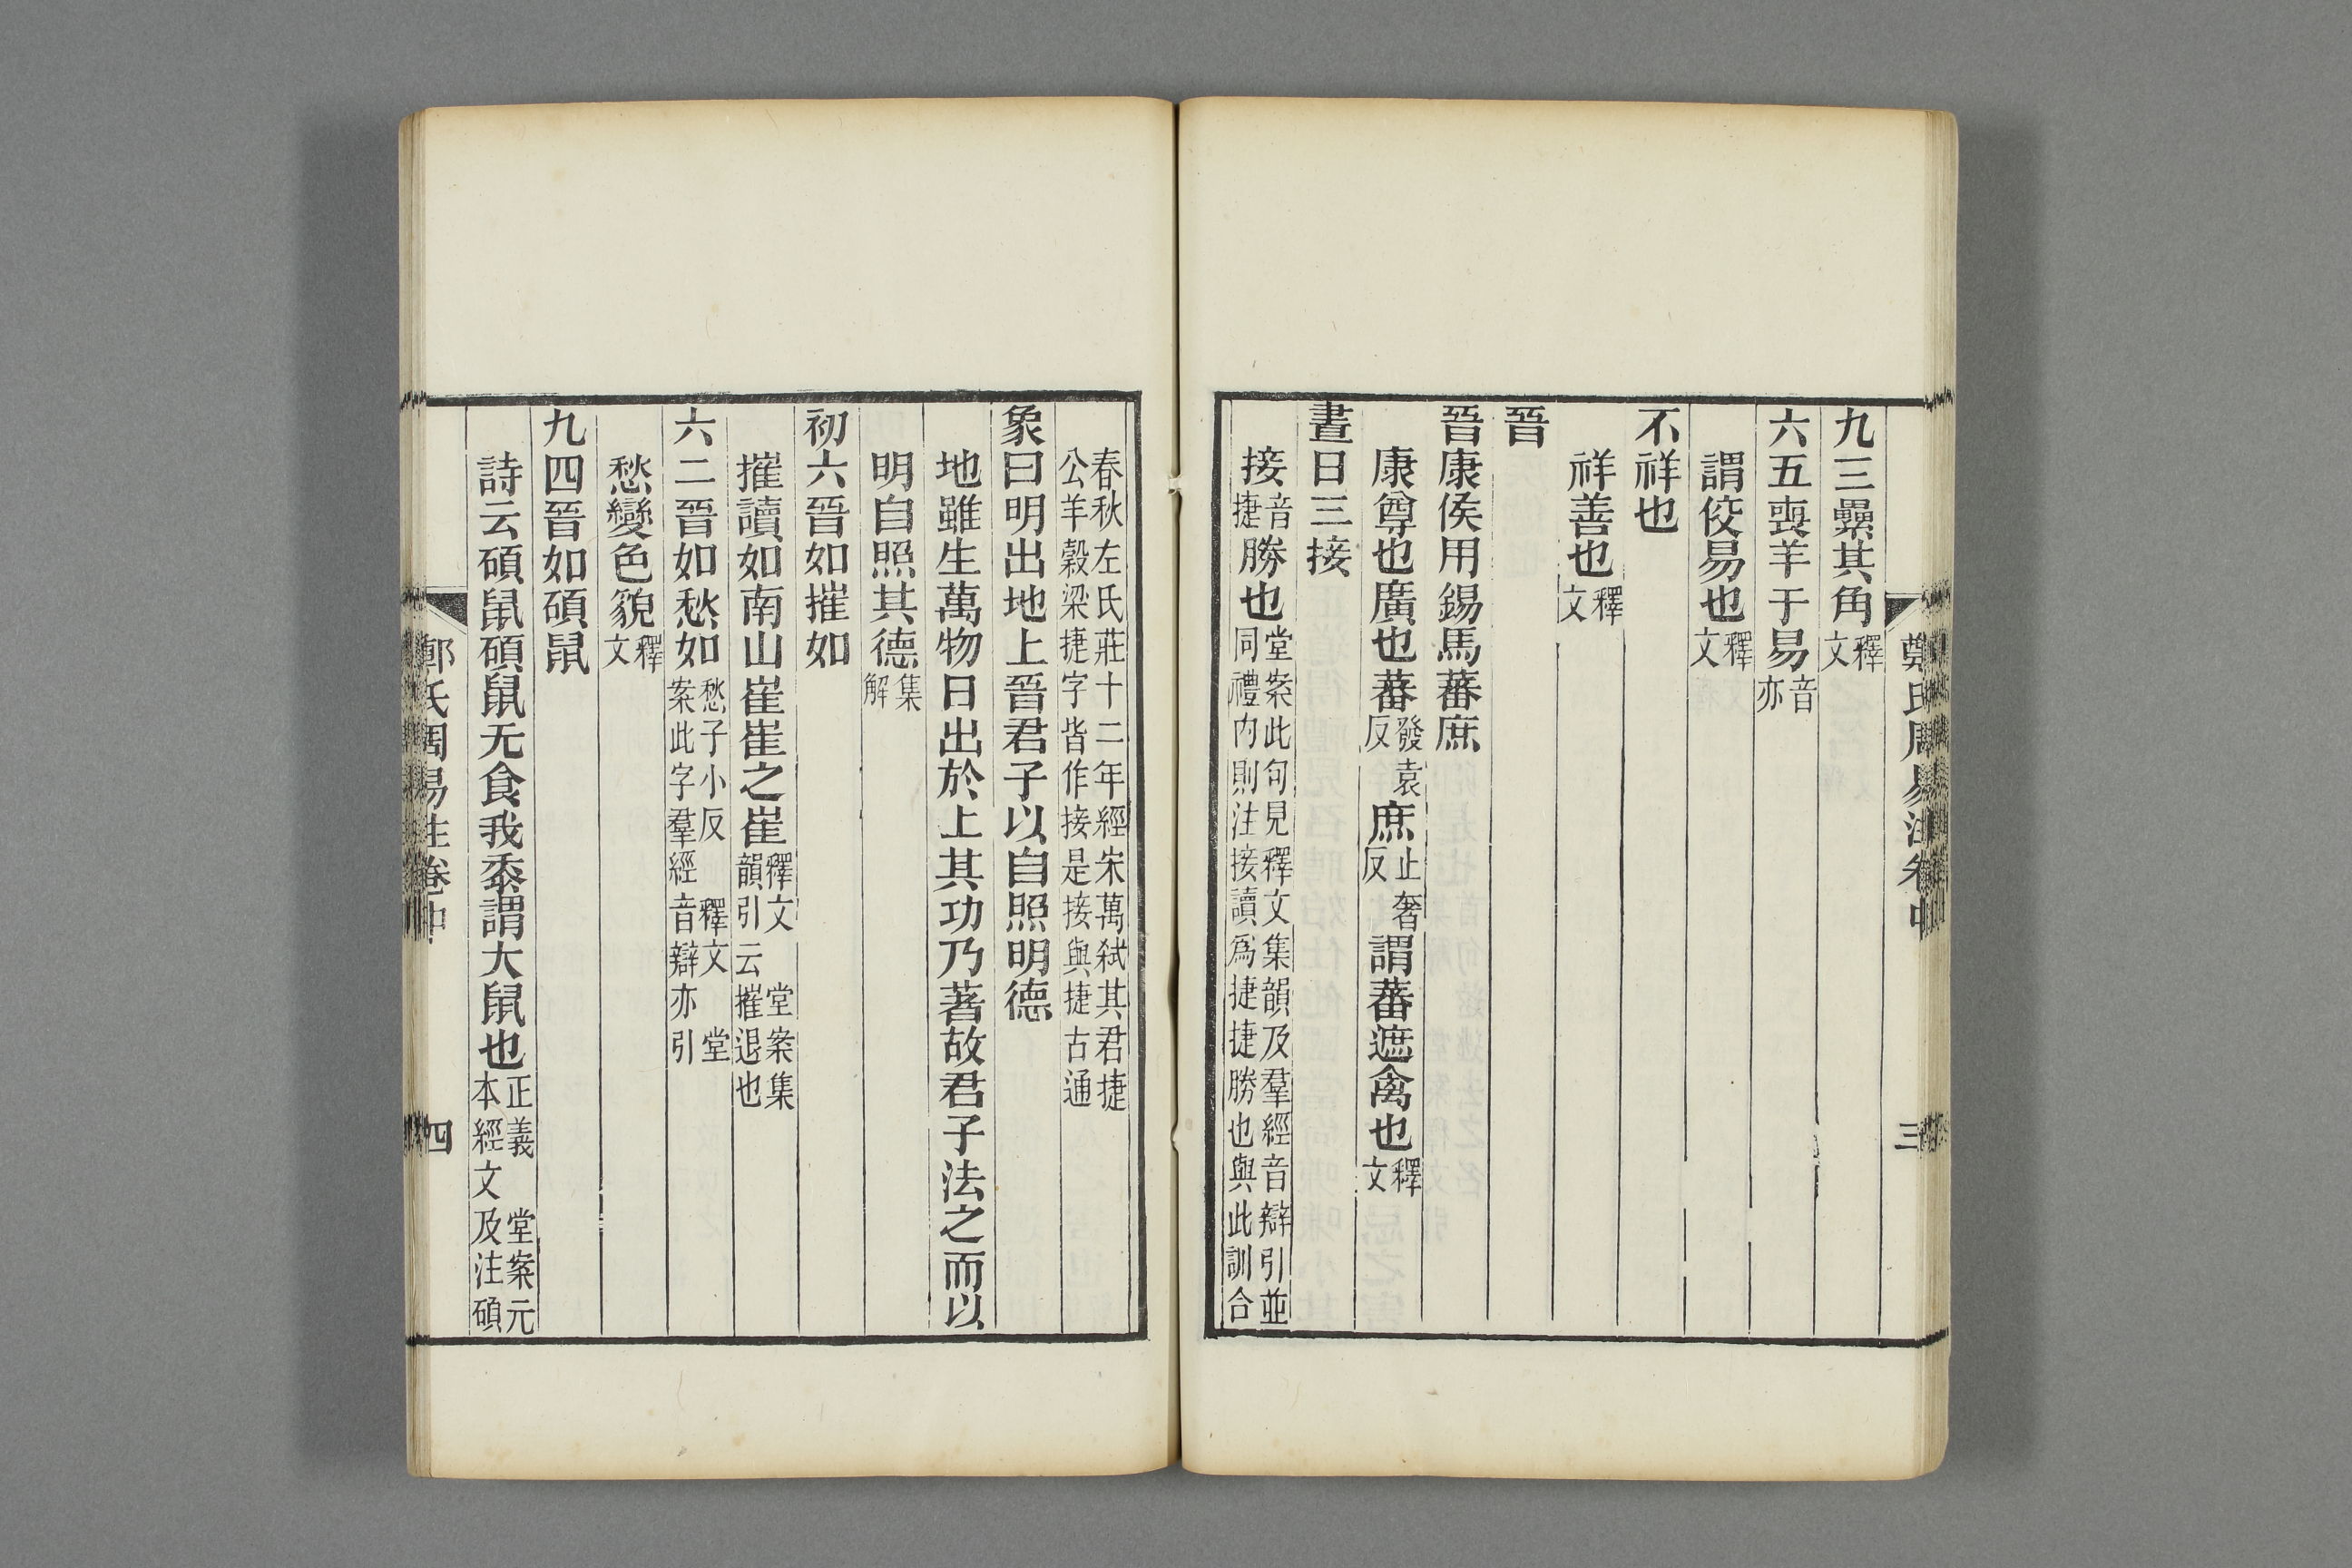 鄭氏周易注卷中 三
九三纍其角釋文
六五喪羊于易音亦
謂佼易也釋文
不祥也
祥善也釋文
晉
晉康侯用錫馬蕃庶
康尊也廣也蕃發袁反庶止奢反謂蕃遮禽也釋文
晝日三接
接音捷勝也堂案此句見釋文集韻及羣經音辯引並同禮内則注接讀爲捷捷勝也與此訓合
春秋左氏莊十二年經宋萬弑其君捷公羊穀梁捷字皆作接是接與捷古通
象曰明出地上晉君子以自照明德
地雖生萬物日出於上其功乃著故君子法之而以
明自照其德集解
初六晉如摧如
摧讀如南山崔崔之崔釋文 堂案集韻引云摧退也
六二晉如愁如愁子小反 釋文 堂案此字羣經音辯亦引
愁變色貌釋文
九四晉如碩鼠
詩云碩鼠碩鼠无食我黍謂大鼠也正義 堂案元本經文及注碩
鄭氏周易注卷中 四